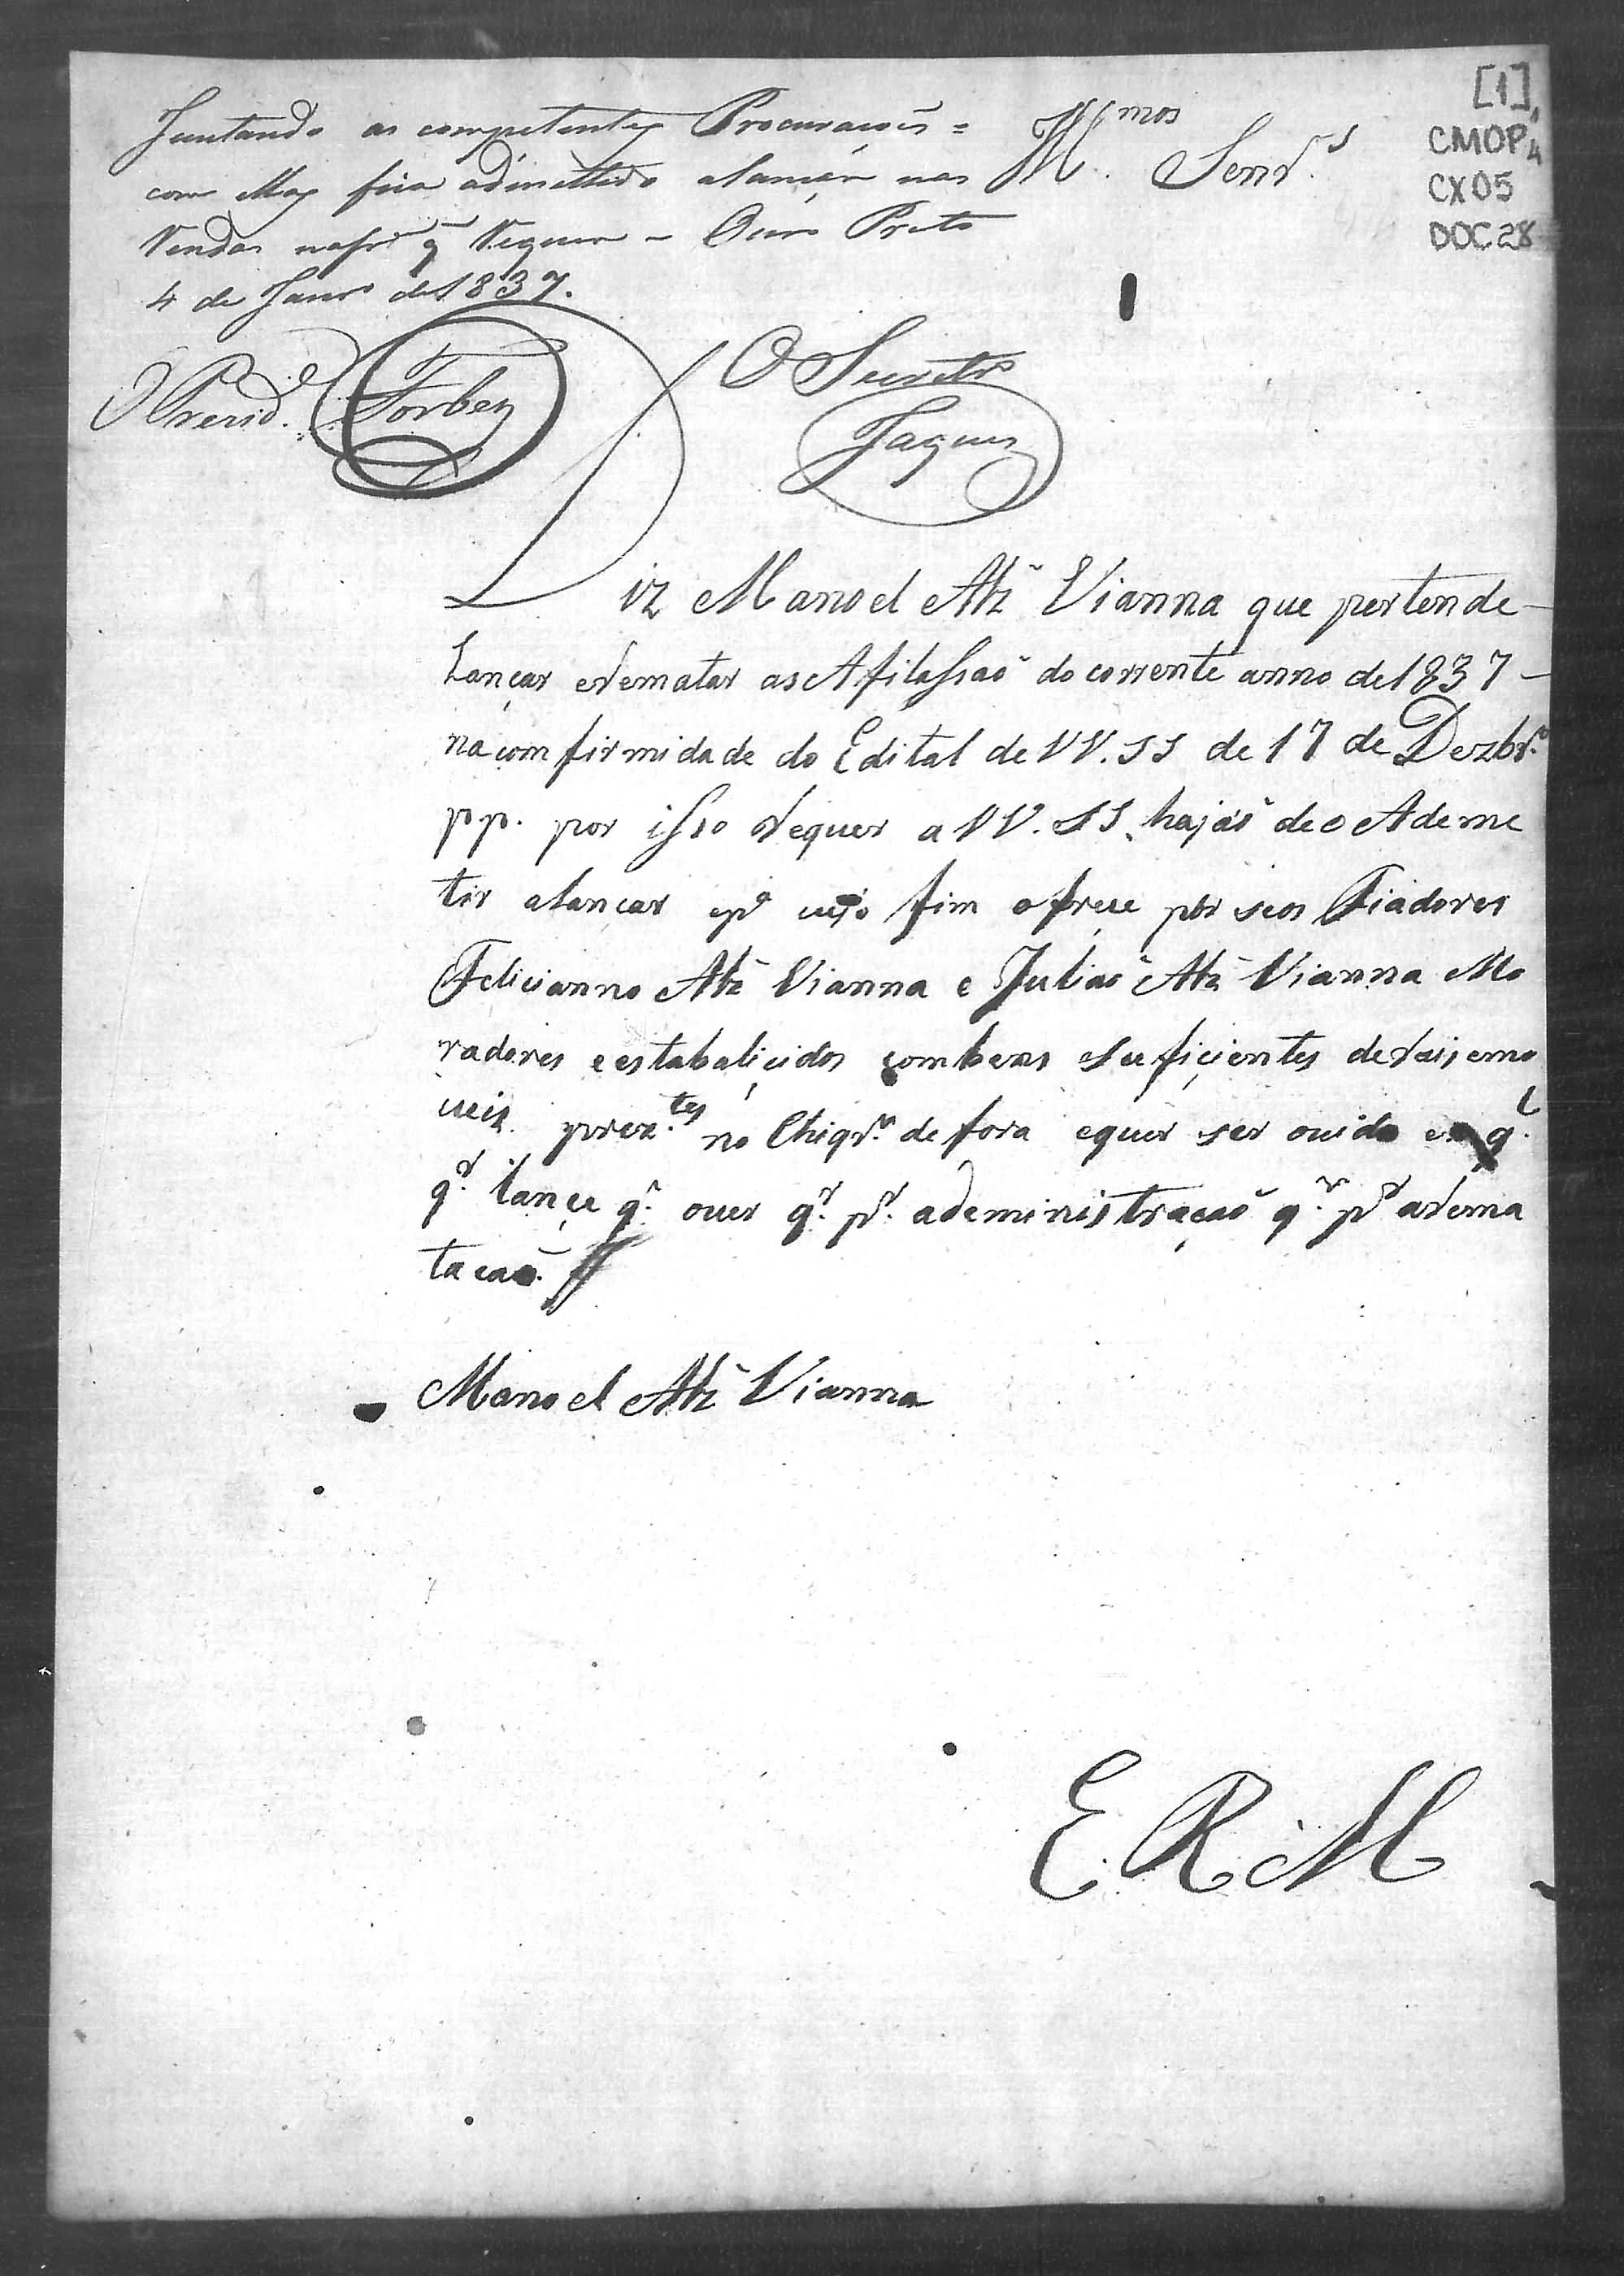 [1]
CMOP
CX05
DOC 28
Juntando as competentes Procuraçoẽs =
com ellas seja admettido a lançar nas
Rendas na fr.ª q̃ Requer - Ouro Preto
4 de Janr.º de 1837.
Ill.mos Senr.s
O Presid.e Forbes
O Secretr.º
Jaques
Diz Manoel Alz̃ Vianna que pertende
Lançar eRematar as Afilassaõ do corrente anno de 1837
na comfirmidade do Edital de VV. SS de 17 de Dezbr.º
pp. por isso Requer a VV. SS. hajaõ de o Ademe
tir a Lancar e p.ª cujo fim ofreçe por seos Fiadores
Felicianno Alz̃ Vianna e Juliaõ Alz̃ Vianna Mo
radores e estabaliçidos com bens Suficientes de Rais emo
ueis prez.tes no Chiqr.º de fora e quer ser ouido em q.l
q.r lançe q.̃ ouer q.r p.ª adeministraçaõ q.r p.ª aRema
tacaõ.
Manoel Alz̃ Vianna
E. R. M